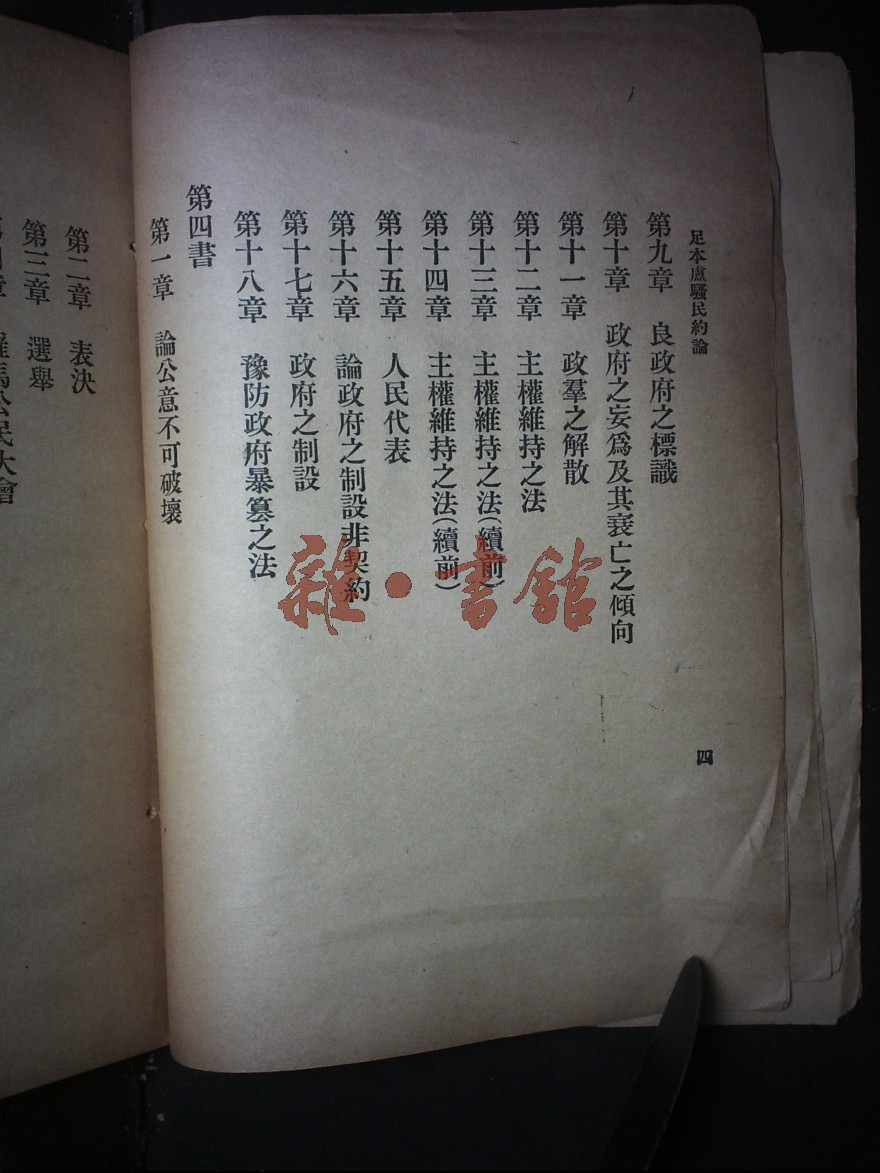 足本盧騷民約論
第九章 良政府之標識
第十章 政府之妄爲及其衰亡之傾向
第十一章 政羣之解散
第十二章 主權維持之法
第十三章 主權維持之法(續前)
第十四章 主權維持之法(續前)
第十五章 人民代表
第十六章 論政府之制設非契約
第十七章 政府之制設
第十八章 豫防政府暴篡之法
第四書
第一章 論公意不可破壞
四
第二章 表決
第三章 選舉
章 羅馬公民大會
雜·書館